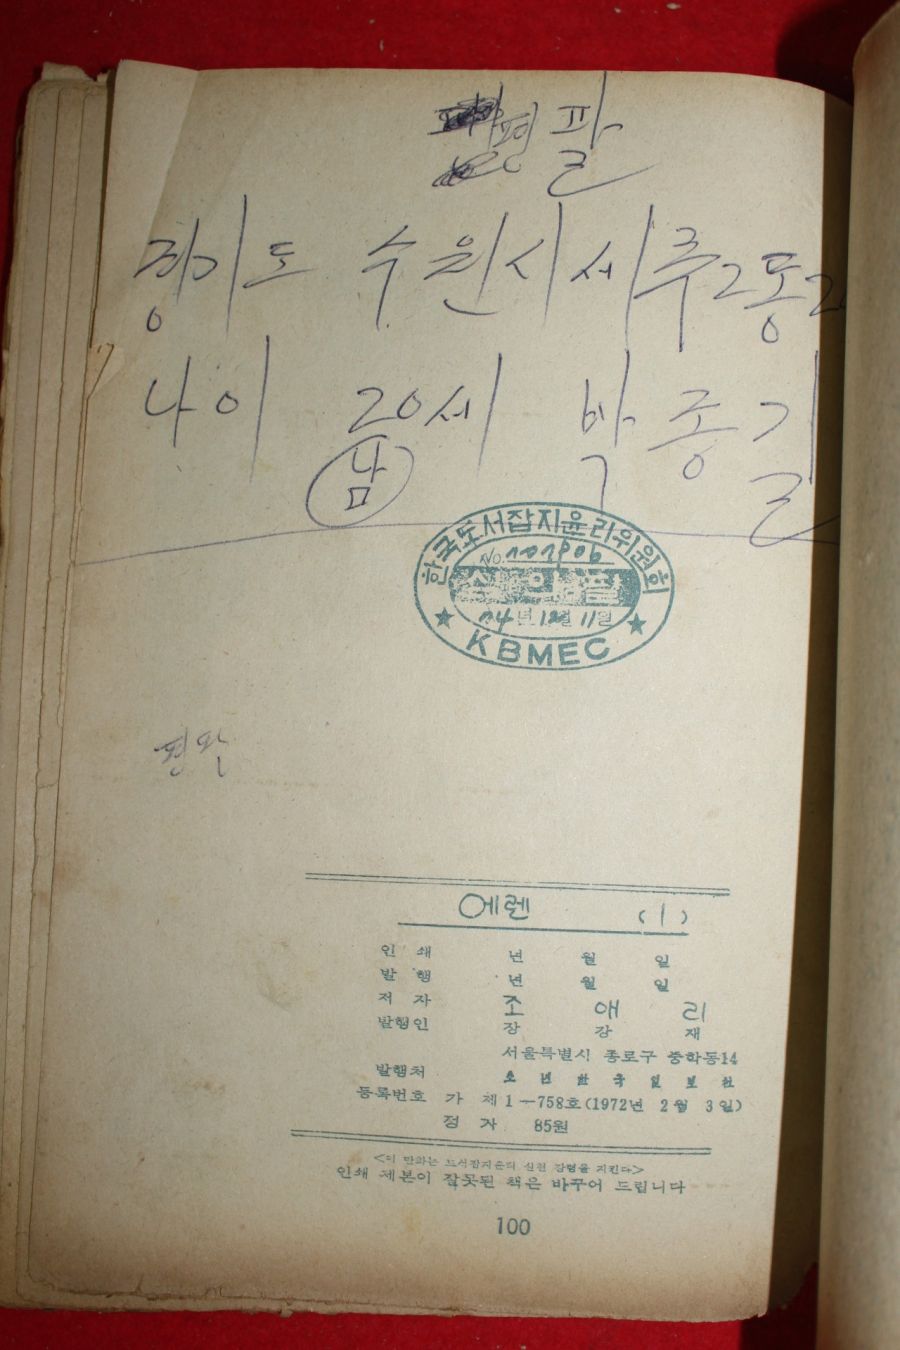 평팔
경기도 수원시 세류2동2
나이 20세 박종길
남
한국도서잡지윤리위원회
No.
74년 12월 11일
KBMEC
에렌 (1)
인쇄 년 월 일
발행 년 월 일
저자 조애리
발행인 장강재
서울특별시 종로구 중학동14
발행처 소년한국일보사
등록번호 가 제1—758호(1972년 2월 3일)
정가 85원
<이 만화는 도서잡지윤리 실천 강령을 지킨다>
인쇄 제본이 잘못된 책은 바꾸어 드립니다
100